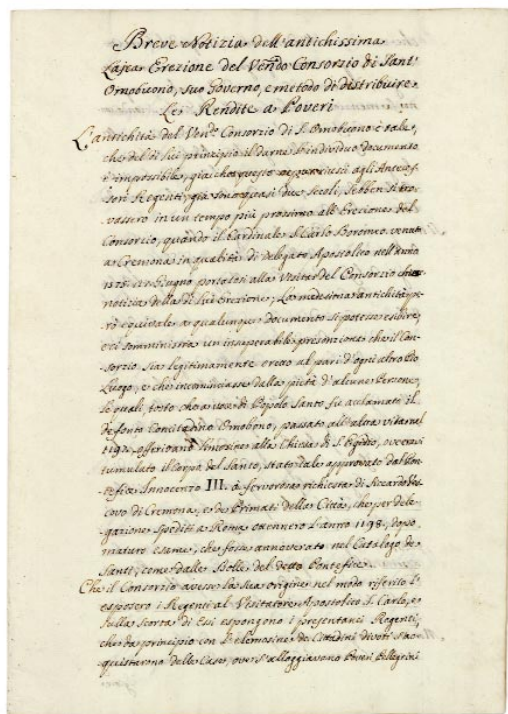 Breve Notizia dell'antichissima
Laica Erezione del Ven.do Consorzio di Sant'
Omobuono, suo Governo, e metodo di distribuire
Le Rendite a Poveri
L'antichità del Ven.do Consorzio di S. Omobuono è tale,
che del di lui principio il darne l'individuo documento
è impossibile, già che questo neppur riuscì agli Anteces-
sori Regenti, già sono quasi due secoli, sebben si tro-
vassero in un tempo più prossimo all'Erezione del
Consorzio, quando il Cardinale S. Carlo Boromeo venuto
a Cremona in qualità di Delegato Apostolico nell'anno
1575. Giugno portatosi alla Visita del Consorzio
notizia della di lui Erezione; La medesima antichità pe-
rò equivale a qualunque documento si potesse esibire,
e ci somministra un insuperabile presunzione che il Con-
sorzio sia legitimamente eretto al pari d'ogni altro Pio
Luogo, e che incominciasse dalla pietà d'alcune Persone,
le quali, tosto che a voce di Popolo Santo fu acclamato il
defonto Concitadino Omobono, passato all'altra vita nel
1197. offerivano Limosine alla Chiesa di S. Egidio, ov'era
tumulato il Corpo del Santo, stato tale approvato dal Pon-
tefice Innocenzo III. a fervorosa richiesta di Siccardo Ves-
covo di Cremona, e de Primati della Città, che per dele-
gazione spediti a Roma ottennero l'anno 1198. dopo
maturo esame, che fosse annoverato nel Catalogo de
Santi, come dalle Bolle del detto Pontefice
Che il Consorzio avesse la sua origine nel modo riferito l'
esposero i Regenti al Visitatore Apostolico S. Carlo, e
sulla scorta di Essi espongono i presentanei Regenti,
che da principio con l'elemosine de Cittadini divoti s'ac-
quistarono delle Case, over s'alloggiavano Poveri Pellegrini